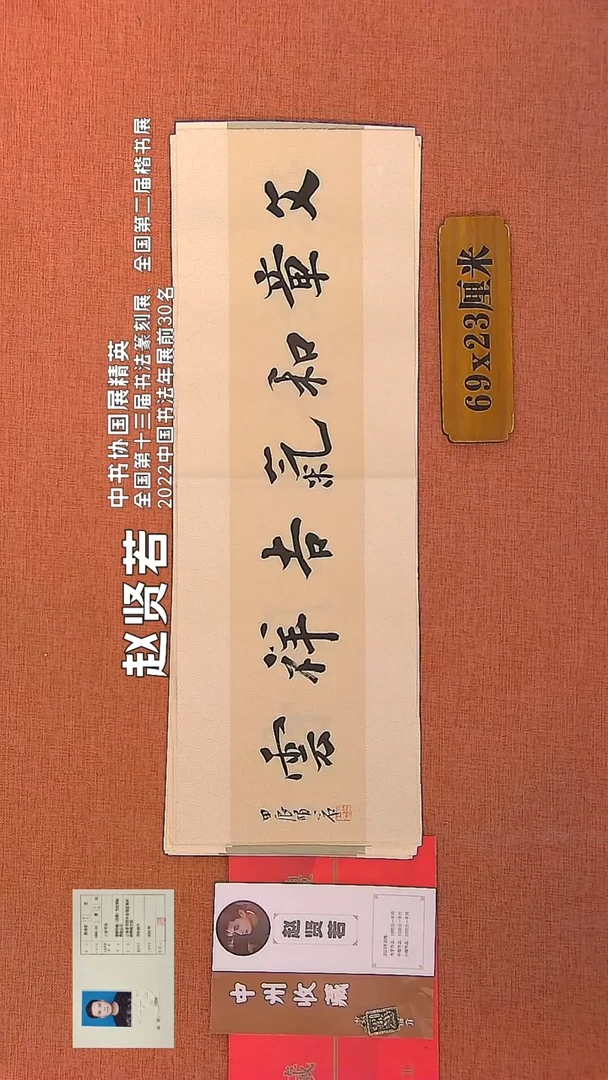 中书协国展精英
赵贤若
全国第十三届书法篆刻展、全国第二届楷书展
2022中国书法年展前30名
文章和氣吉祥雲
69x23厘米
赵贤若
中州收藏
藏